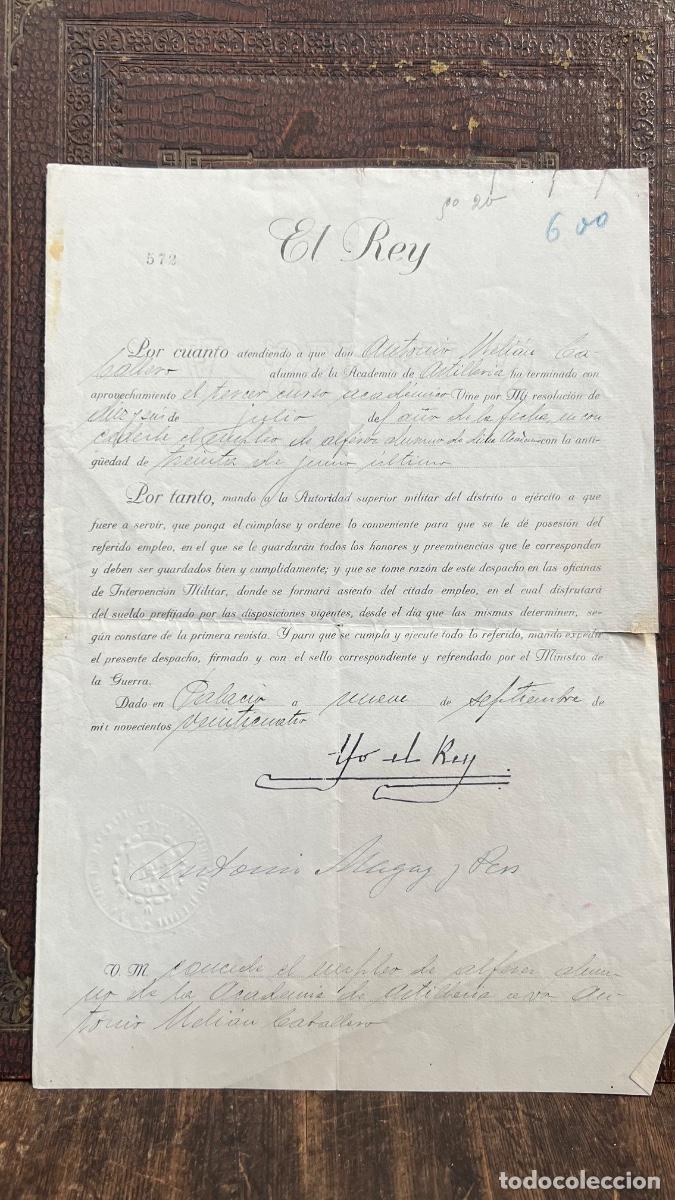 50 20
6 00
572
El Rey
Por cuanto atendiendo a que don Antonio Melián Ca-
ballero alumno de la Academia de Artillería ha terminado con
aprovechamiento el tercer curso académico Vine por Mi resolución de
diez y seis de julio del año de la fecha, en con
cederle el empleo de alférez alumno de dicha Academia con la anti-
güedad de treinta de junio último
Por tanto, mando a la Autoridad superior militar del distrito o ejército a que
fuere a servir, que ponga el cúmplase y ordene lo conveniente para que se le dé posesión del
referido empleo, en el que se le guardarán todos los honores y preeminencias que le corresponden
y deben ser guardados bien y cumplidamente; y que se tome razón de este despacho en las oficinas
de Intervención Militar, donde se formará asiento del citado empleo, en el cual disfrutará
del sueldo prefijado por las disposiciones vigentes, desde el día que las mismas determinen, se-
gún constare de la primera revista. Y para que se cumpla y ejecute todo lo referido, mando expedir
el presente despacho, firmado y con el sello correspondiente y refrendado por el Ministro de
la Guerra.
Dado en Palacio a nueve de septiembre de
mil novecientos veinticuatro
Yo el Rey
Antonio Magaz y Pers
V. M. concede el empleo de alférez alum-
no de la Academia de Artillería a Dn An-
tonio Melián Caballero
todocoleccion
todocoleccion.net